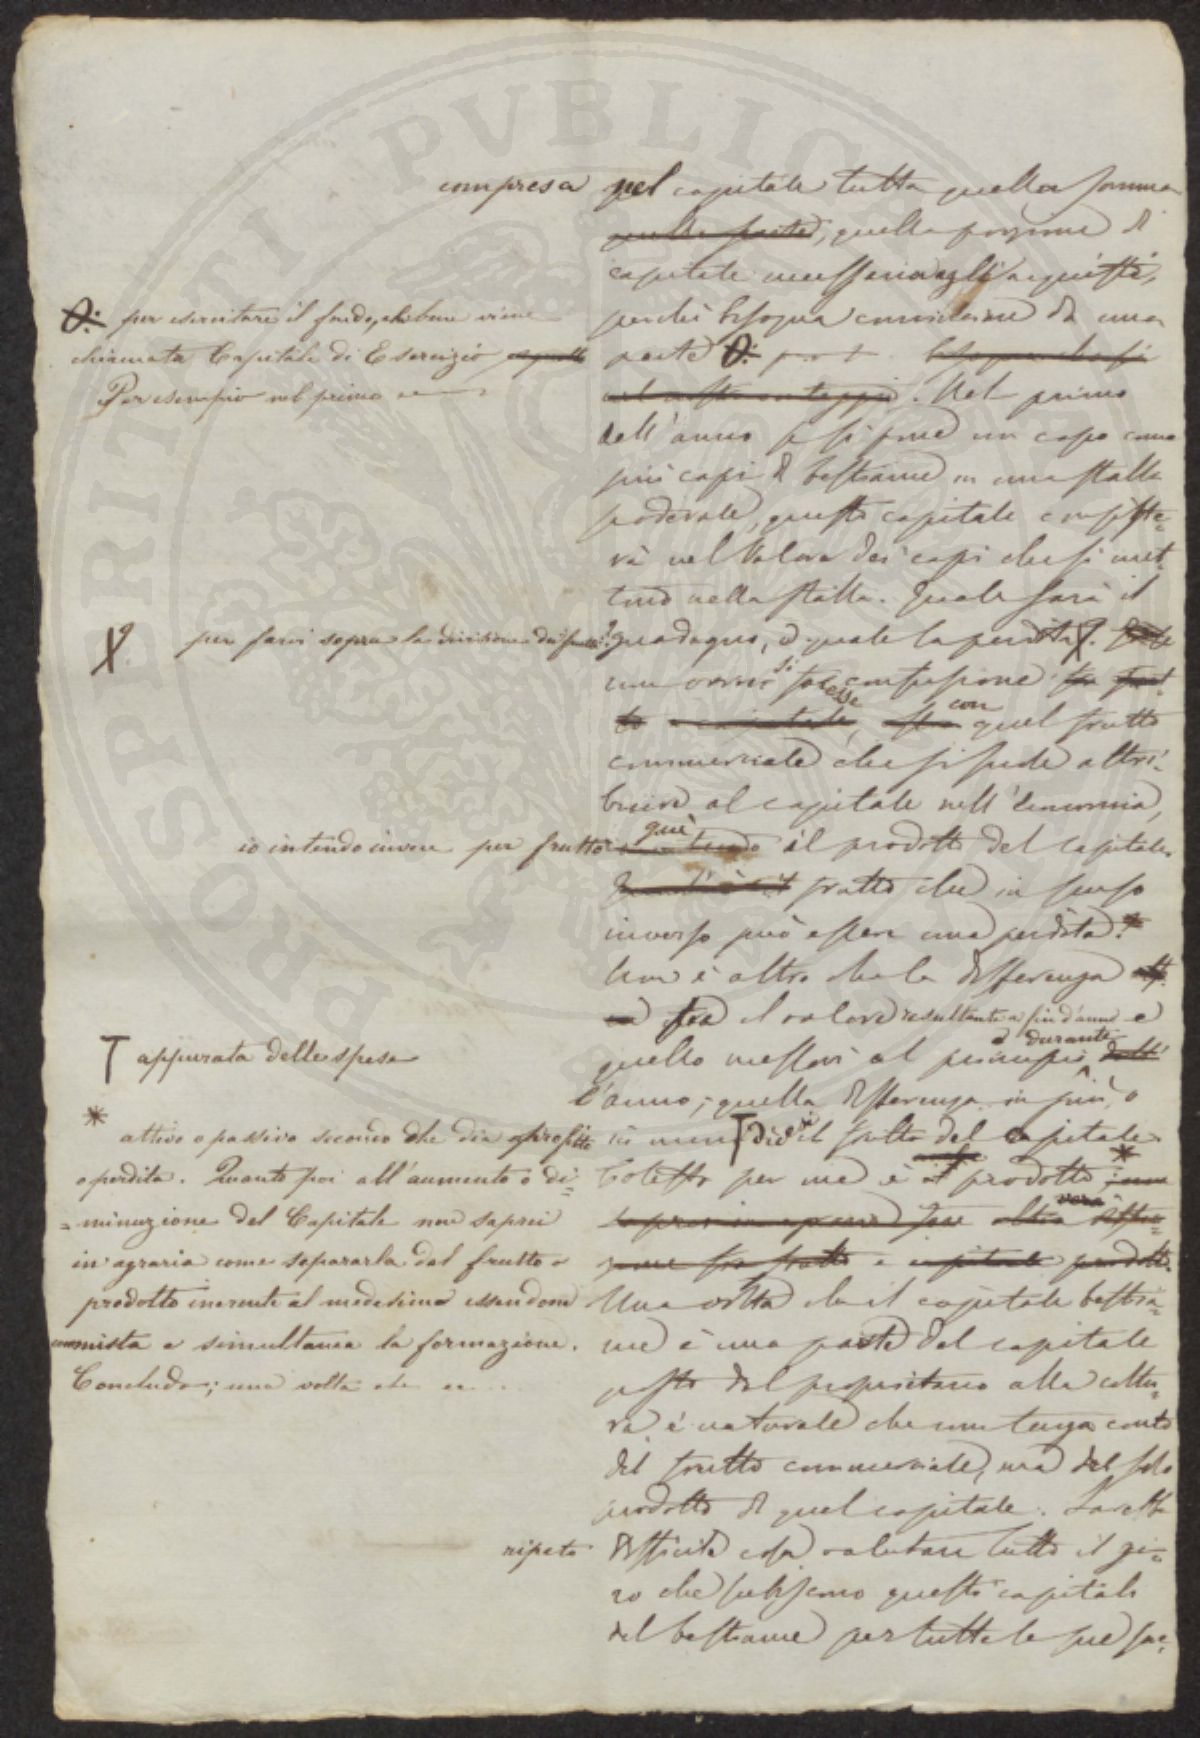 compresa nel capitale tutta quella somma
quella parte, quella porzione di
capitale necessaria agli acquisti,
perché bisogna convenirne da una
parte O:
Nel primo
dell'anno se si pone un capo come
più capi di bestiame in una stalla
poderale, questo capitale consiste-
rà nel valore dei capi che si met-
tono nella stalla. Quale sarà il
guadagno, o quale la perdita?
non ovvi si confusione
con quel frutto
commerciale che si suole attri-
buire al capitale nell'economia,
quì il prodotto del capitale.
frutto che in senso
inverso può essere una perdita?
Non è altro che la differenza
fra il valore resultante a fin d'anno e
quello messovi al principio e durante
l'anno; quella differenza in più, o
in meno T dicesi il frutto del capitale.
Cotesto per me è il prodotto *
vera
e capitale prodotto.
Una volta che il capitale bestia-
me è una parte del capitale
posto dal proprietario alla cultu-
ra è naturale che non tenga conto
del frutto commerciale, ma del solo
prodotto di quel capitale. Sarebbe
ripeto difficile cosa valutare tutto il gi-
ro che subiscono questi capitali
del bestiame per tutte le sue fac-
O: per esercitare il fondo, che bene viene
chiamata Capitale di Esercizio
Per esempio nel primo
per farvi sopra la divisione dei
io intendo invece per frutto
T appurata delle spese
* attivo o passivo secondo che dia profitto
o perdita. Quanto poi all'aumento o di=
=minuzione del Capitale non saprei
in agraria come separarla dal frutto o
prodotto inerente al medesimo essendone
commista e simultanea la formazione.
Concludo; una volta che